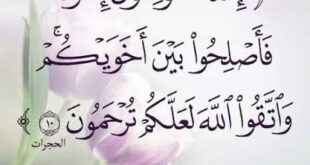 فَأَصۡلِحُواْ بَيۡنَ أَخَوَيۡكُمۡۚ
وَٱتَّقُواْ ٱللَّهَ لَعَلَّكُمۡ تُرۡحَمُونَ ١٠ ﴾
الحجرات